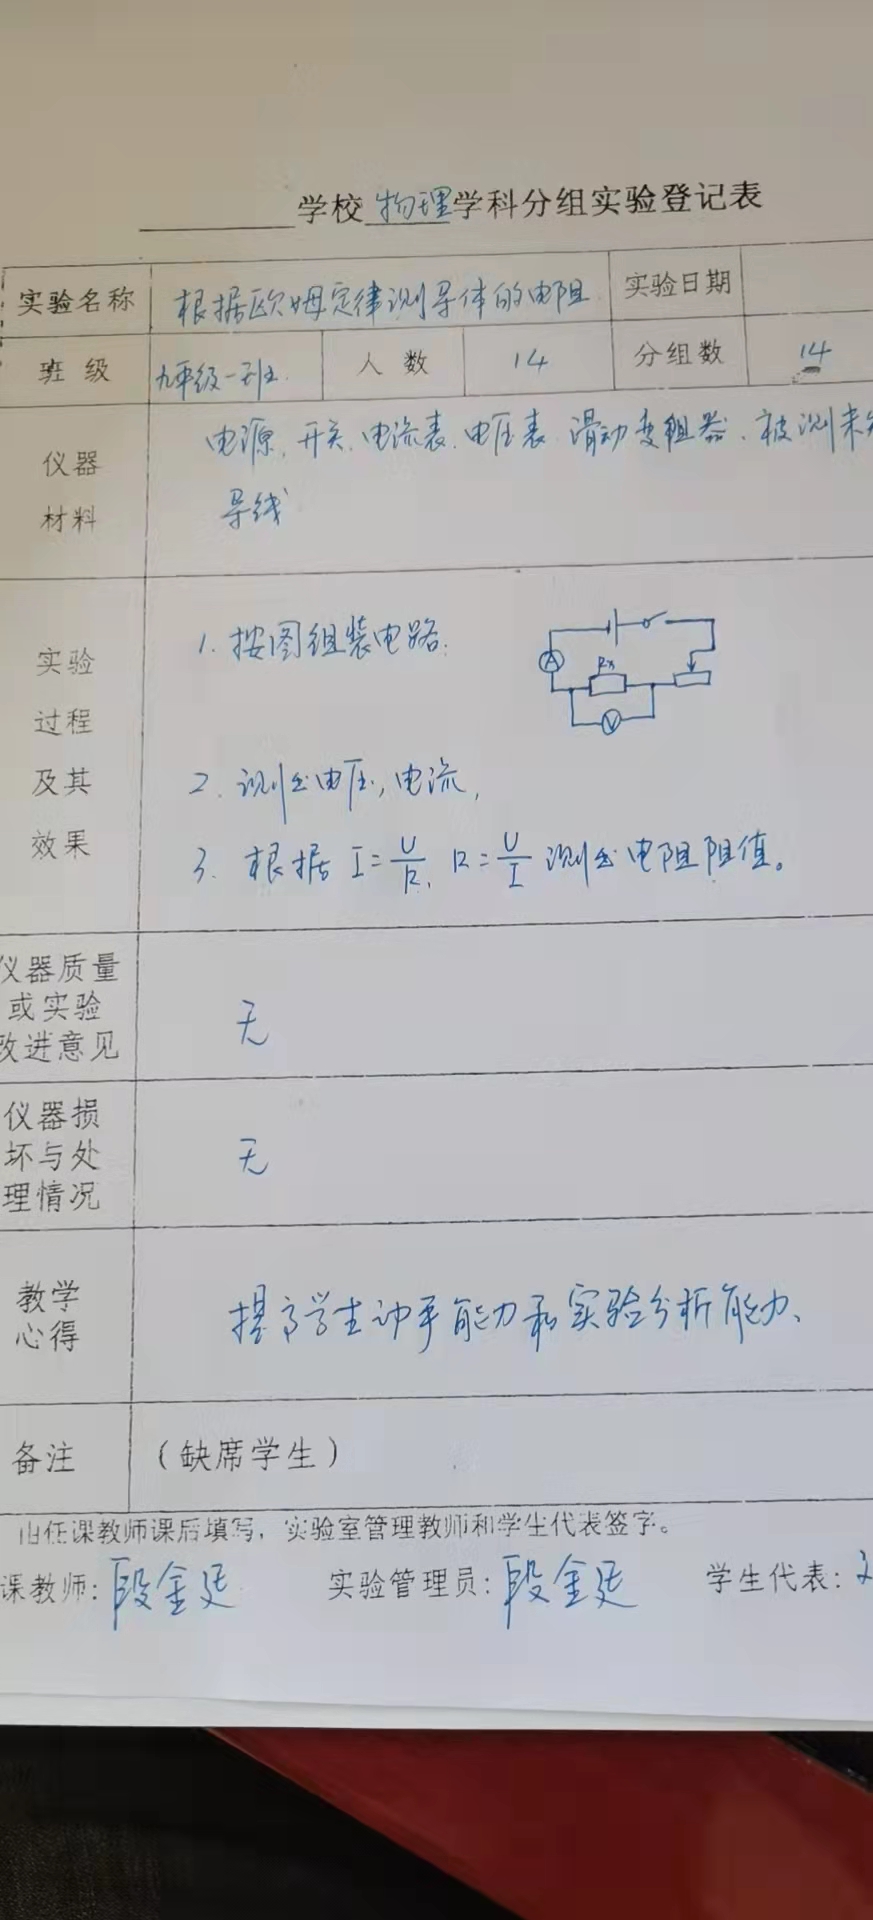 学校物理学科分组实验登记表
实验名称 根据欧姆定律测导体的电阻 实验日期
班级 九年级一班 人数 14 分组数 14
仪器材料
电源、开关、电流表、电压表、滑动变阻器、被测未
导线
实验过程及其效果
1. 按图组装电路:
A Rx V
2. 测出电压,电流,
3. 根据 I=U/R, R=U/I 测出电阻阻值。
仪器质量
或实验
改进意见
无
仪器损
坏与处
理情况
无
教学
心得
提高学生动手能力和实验分析能力、
备注 (缺席学生)
由任课教师课后填写,实验室管理教师和学生代表签字。
课教师:段金廷 实验管理员:段金廷 学生代表: